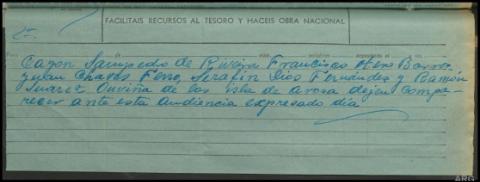 FACILITAIS RECURSOS AL TESORO Y HACEIS OBRA NACIONAL
2.
Cazon Sampedro de Riveira Francisco Otero Barro
Juan Chaves Ferro, Serafin Dios Fernández y Ramón
Suarez Ouviña de las isla de arosa dejen compa-
recer ante esta audiencia expresado dia